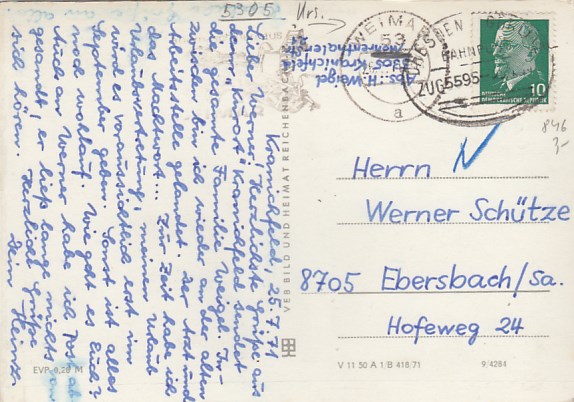 5305
Urs.
Kranichfeld, 25.7.71
Lieber Werner! Herzlichste Grüße aus
dem "Luftkurort" Kranichfeld sendet
die gesamte Familie Weigel. In-
zwischen bin ich wieder an der alten
Arbeitsstelle gelandet. Der Arzt und
das Machtwort... Zur Zeit habe ich
"Urlaubsvertretung", meinen Urlaub
wird es voraussichtlich erst im
Sept. geben. Sonst ist alles
noch wohlauf. Wie geht es Euch?
Auch an Werner habe ich Post ab-
gesandt, er ließ lange nichts von
sich hören. Herzlich grüßt
Dein Heinz.
EVP 0,20 M
VEB BILD UND HEIMAT REICHENBACH
Abs.: H. Weigel
5305 Kranichfeld
WEIMAR
53
a
DRESDEN
BAHNPOST
ZUG 5595
DEUTSCHE
DEMOKRATISCHE REPUBLIK
10
846
3,-
Herrn
Werner Schütze
8705 Ebersbach/Sa.
Hofeweg 24
V 11 50 A 1/B 418/71
9/4284